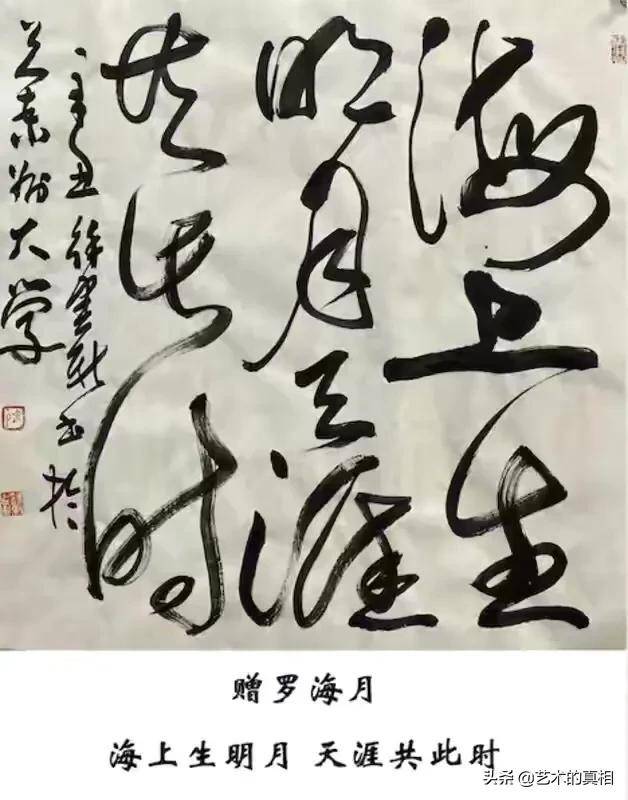 海上生
明月天涯
共此时
辛丑徐书於
大学
赠罗海月
海上生明月 天涯共此时
头条 @艺术的真相